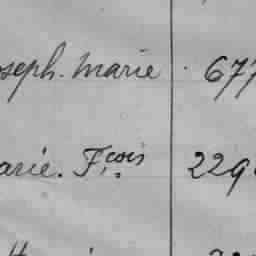 oseph. Marie 677
arie. F.çois 229